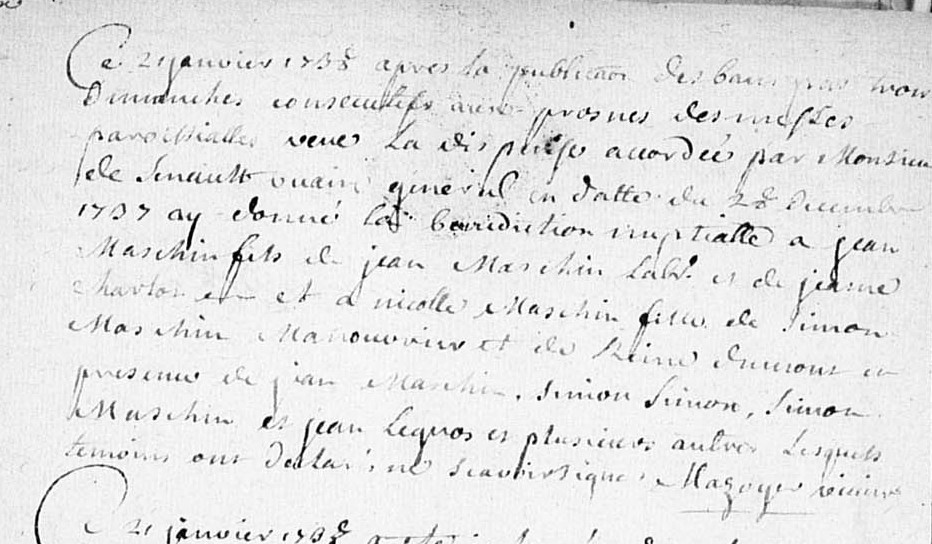 Ce 21 janvier 1738 apres la publication des bans par trois
Dimanches consecutifs aux prosnes des messes
paroissialles veue la dispense accordée par Monsieur
de Sinault vicaire général en datte du 28 Decembre
1737 ay donné la benediction nuptialle a jean
Maschin fils de jean Maschin labr. et de jeanne
charlot et a nicolle Maschin fille de Simon
Maschin Manouvrier et de Reine en
presence de jean Maschin, Simon Simon, Simon
Maschin et jean Legros et plusieurs autres Lesquels
temoins ont declaré ne scavoir signer Magoyer vicaire
Ce 21 janvier 1738